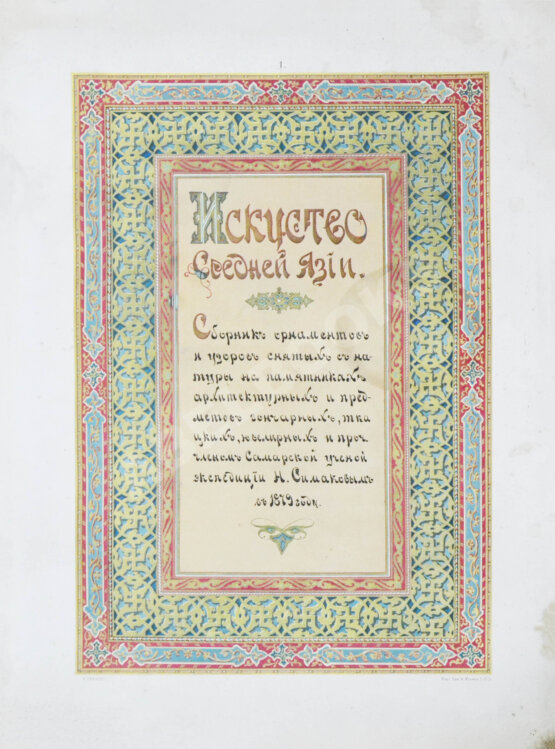 1
Искуство
Средней Азіи.
Сборникъ орнаментовъ
и узоровъ снятыхъ съ на-
туры на памятникахъ
архитектурныхъ и пред-
метовъ гончарныхъ, тка
цкихъ, ювелирныхъ и проч.
членомъ Самарской ученой
экспедиціи Н. Симаковымъ
въ 1879 году.